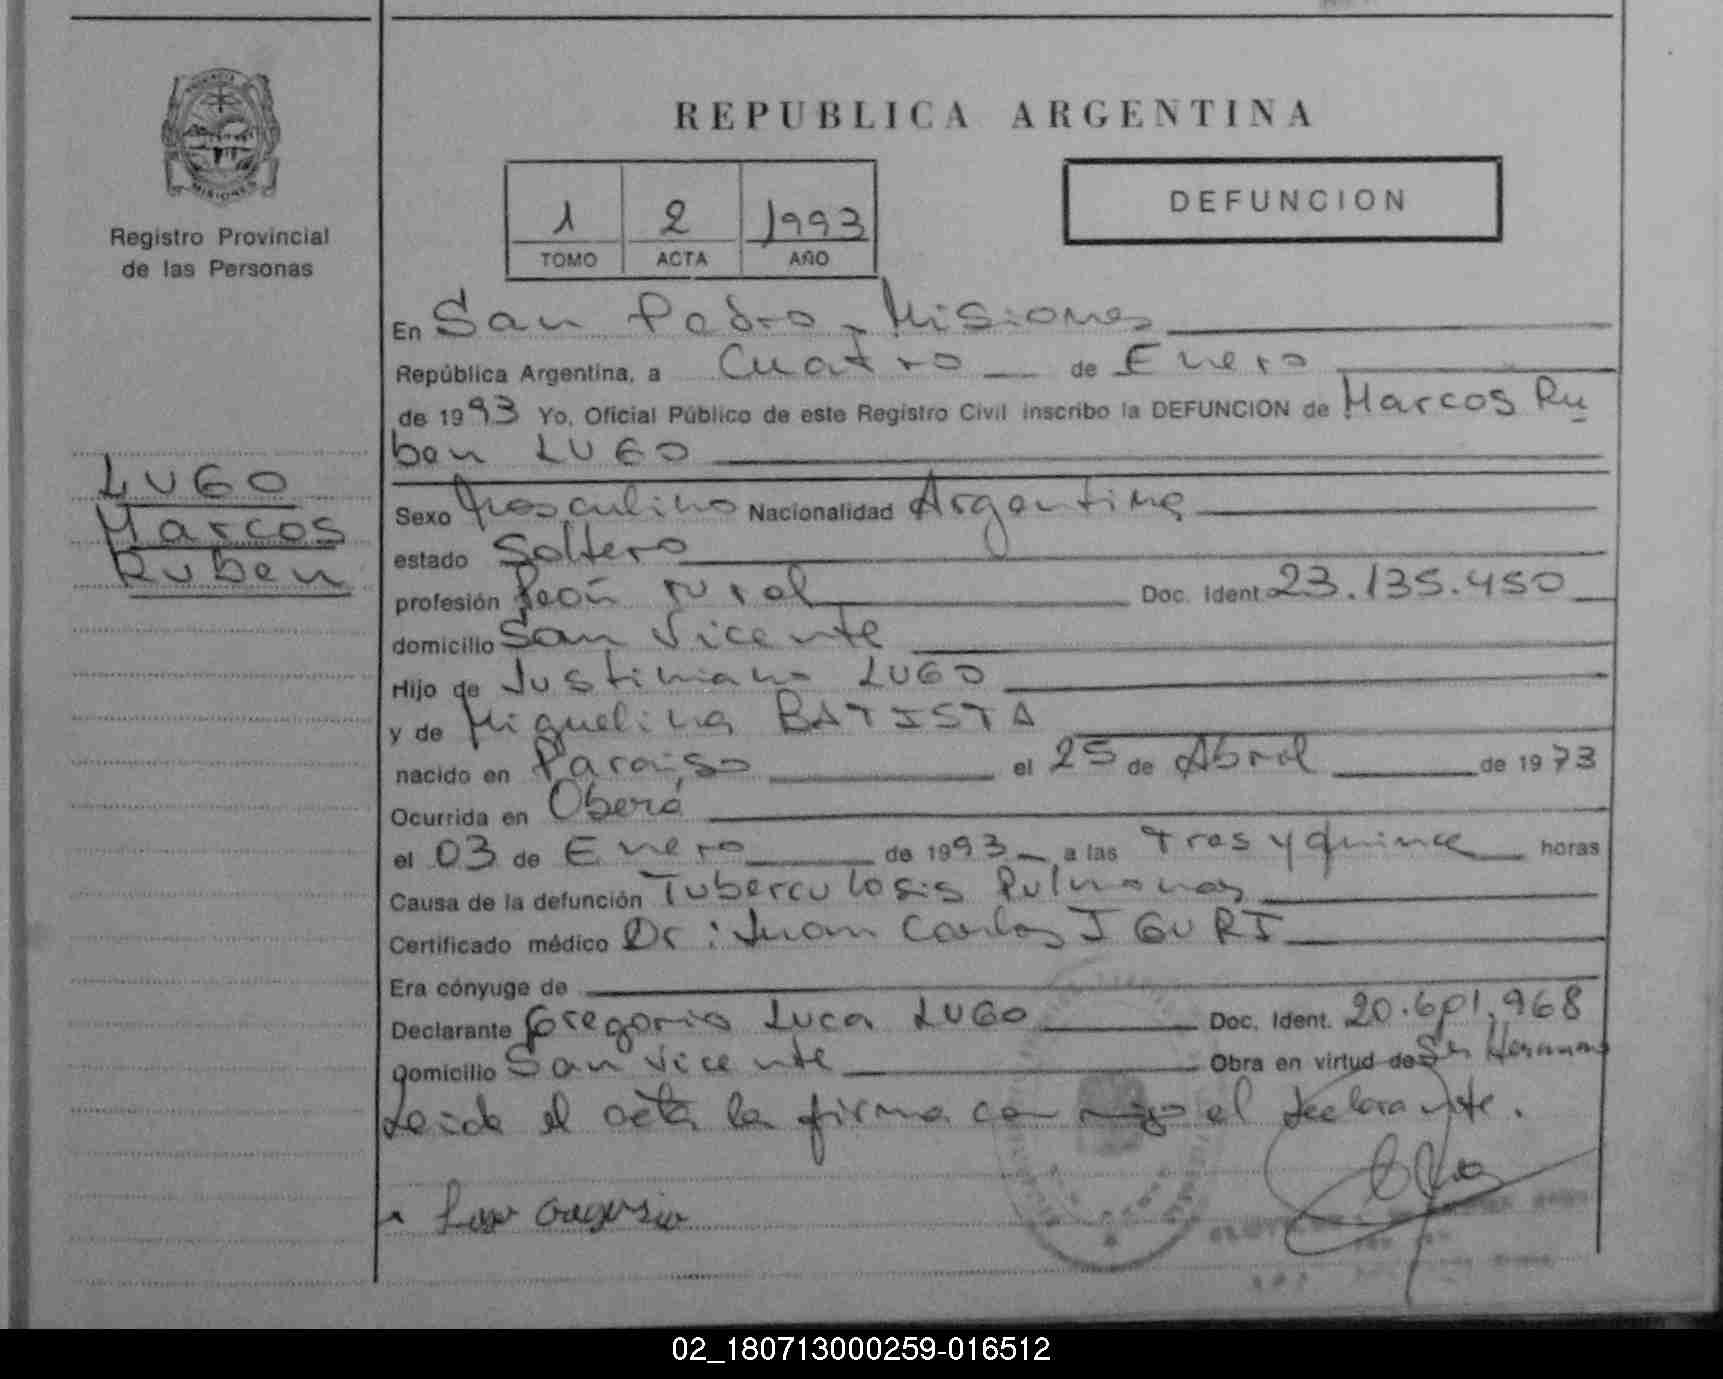 REPUBLICA ARGENTINA
PROVINCIA
MISIONES
Registro Provincial
de las Personas
1 2 1993
TOMO ACTA AÑO
DEFUNCION
En San Pedro, Misiones
República Argentina, a Cuatro de Enero
de 1993 Yo, Oficial Público de este Registro Civil inscribo la DEFUNCION de Marcos Ru
ben LUGO
LUGO
Marcos
Ruben
Sexo Masculino Nacionalidad Argentina
estado Soltero
profesión Peón rural Doc. Ident. 23.135.450
domicilio San Vicente
Hijo de Justiniano LUGO
y de Miguelina BATISTA
nacido en Paraiso el 25 de Abril de 1973
Ocurrida en Oberá
el 03 de Enero de 1993 a las tres y quince horas
Causa de la defunción Tuberculosis Pulmonar
Certificado médico Dr: Juan Carlos IGURI
Era cónyuge de
Declarante Gregorio Luca LUGO Doc. Ident. 20.601.968
Domicilio San Vicente Obra en virtud de Ser Hermano
Leida el acta la firma con migo el declarante.
02_180713000259-016512